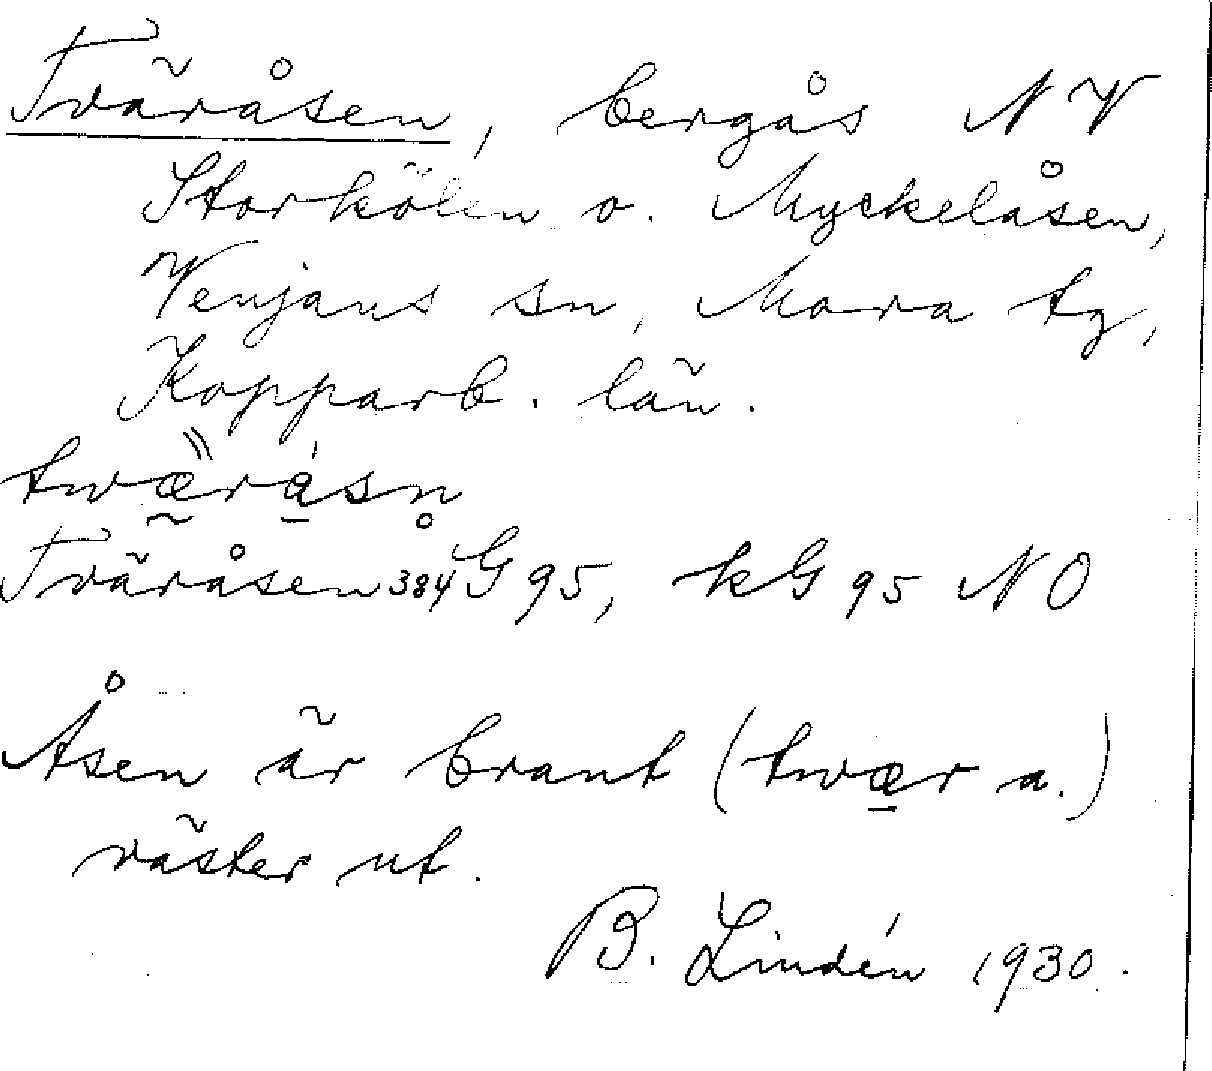 Tväråsen, bergås NV
Storkölen o. Myckelåsen,
Venjans sn, Mora tg,
Kopparb. län.
twæ̱̃r`a̱sn̥
Tväråsen 384 G 95, kG 95 NO
Åsen är brant (twæ̱r a.)
väster ut.
B. Lindén 1930.